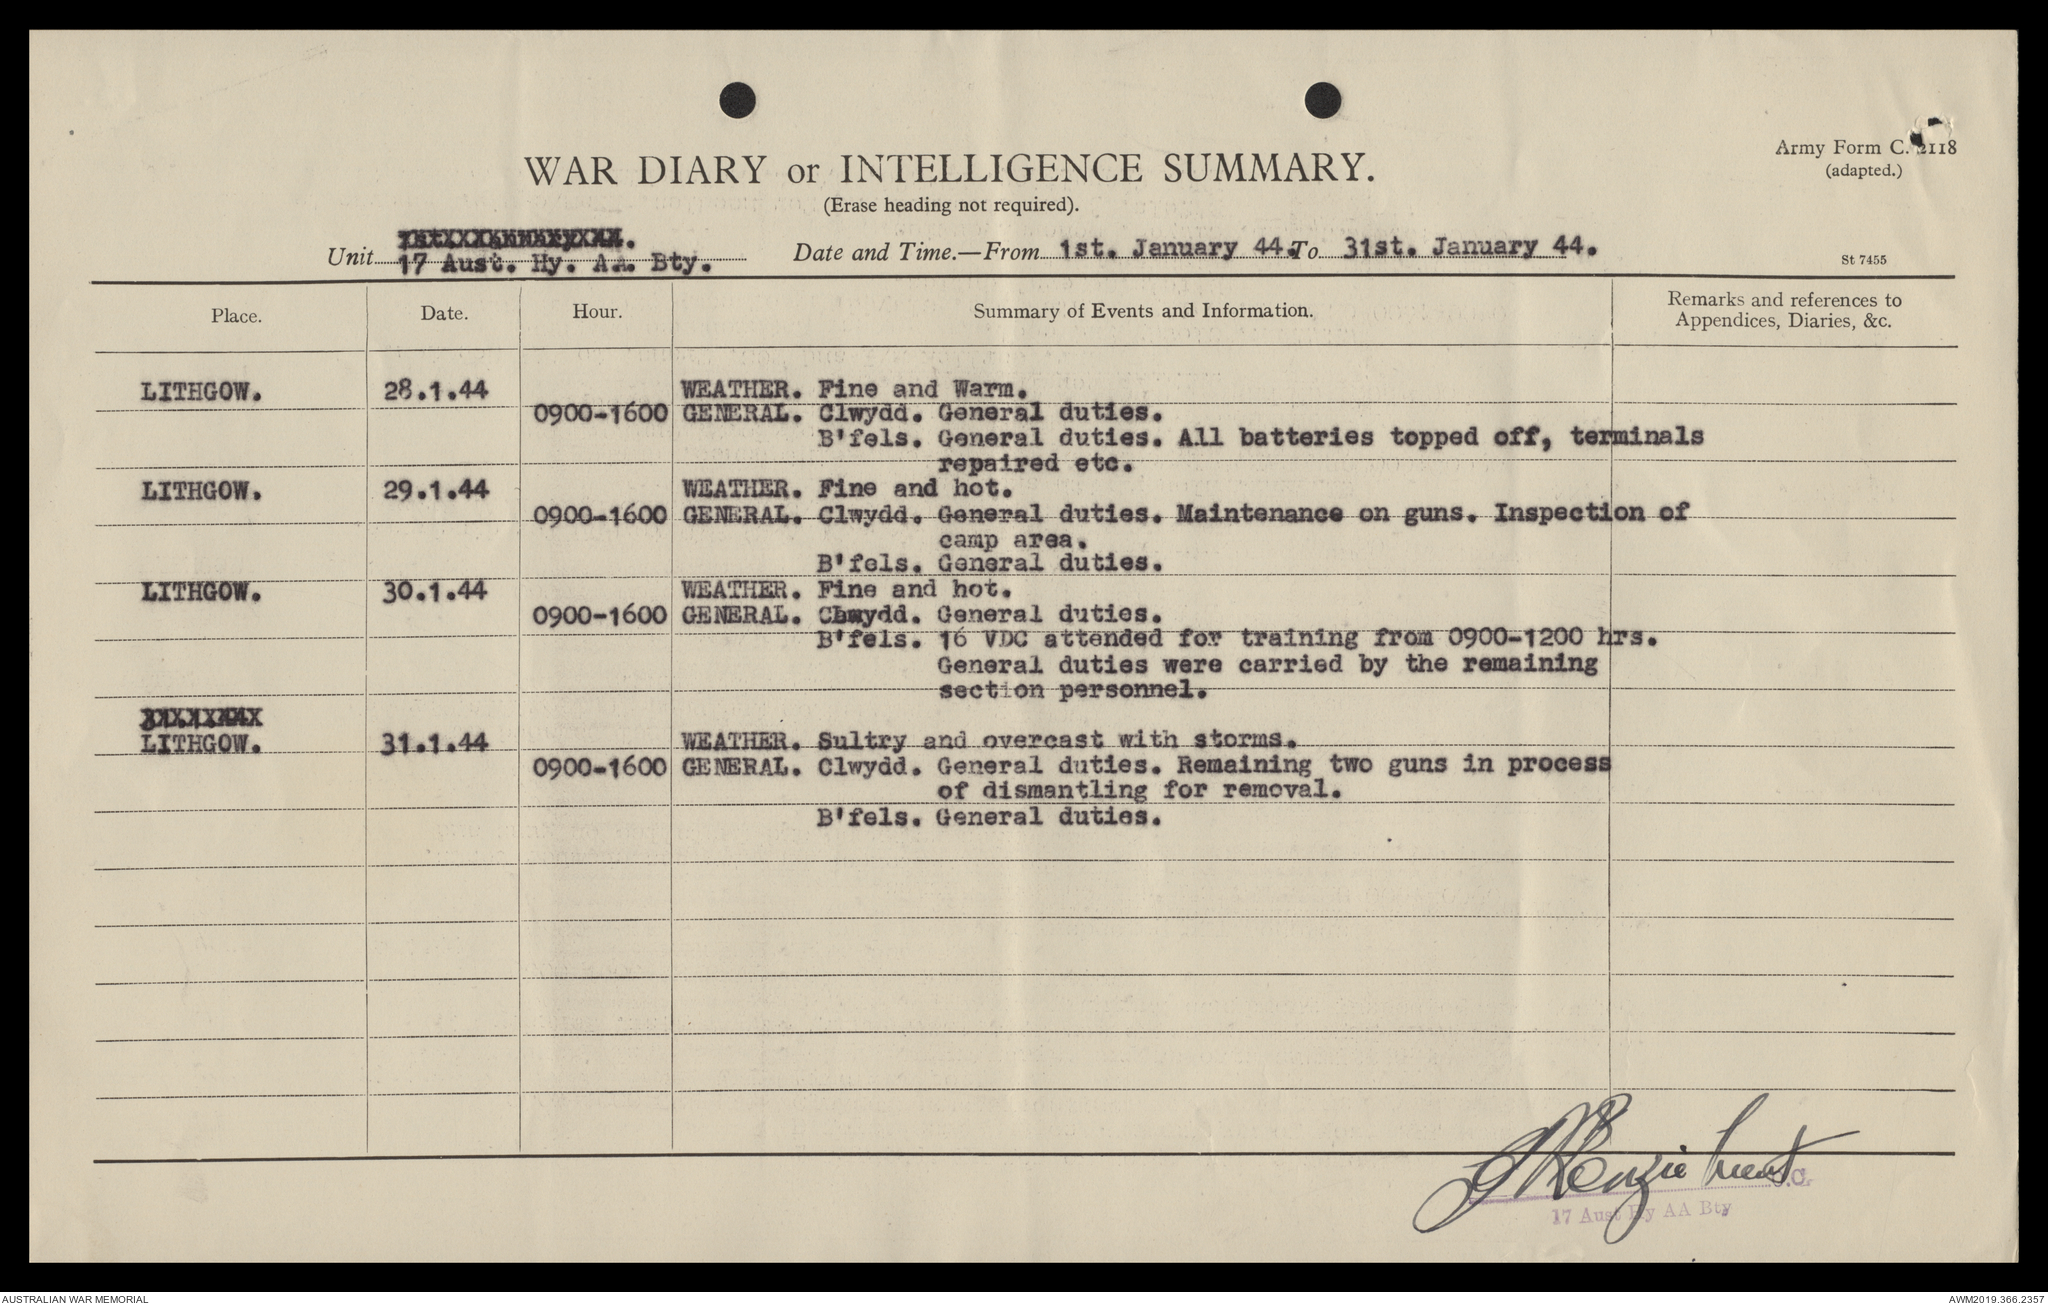 Army Form C. 2118
(adapted.)
WAR DIARY or INTELLIGENCE SUMMARY.
(Erase heading not required).
Unit 17 Aust. Hy. AA. Bty. Date and Time.—From 1st. January 44. To 31st. January 44.
St 7455
Place. Date. Hour. Summary of Events and Information. Remarks and references to
Appendices, Diaries, &c.
LITHGOW. 28.1.44 WEATHER. Fine and Warm.
0900-1600 GENERAL. Clwydd. General duties.
B'fels. General duties. All batteries topped off, terminals
repaired etc.
LITHGOW. 29.1.44 WEATHER. Fine and hot.
0900-1600 GENERAL. Clwydd. General duties. Maintenance on guns. Inspection of
camp area.
B'fels. General duties.
LITHGOW. 30.1.44 WEATHER. Fine and hot.
0900-1600 GENERAL. Clwydd. General duties.
B'fels. 16 VDC attended for training from 0900-1200 hrs.
General duties were carried by the remaining
section personnel.
LITHGOW. 31.1.44 WEATHER. Sultry and overcast with storms.
0900-1600 GENERAL. Clwydd. General duties. Remaining two guns in process
of dismantling for removal.
B'fels. General duties.
17 Aust Hy AA Bty
AUSTRALIAN WAR MEMORIAL
AWM2019.366.2357